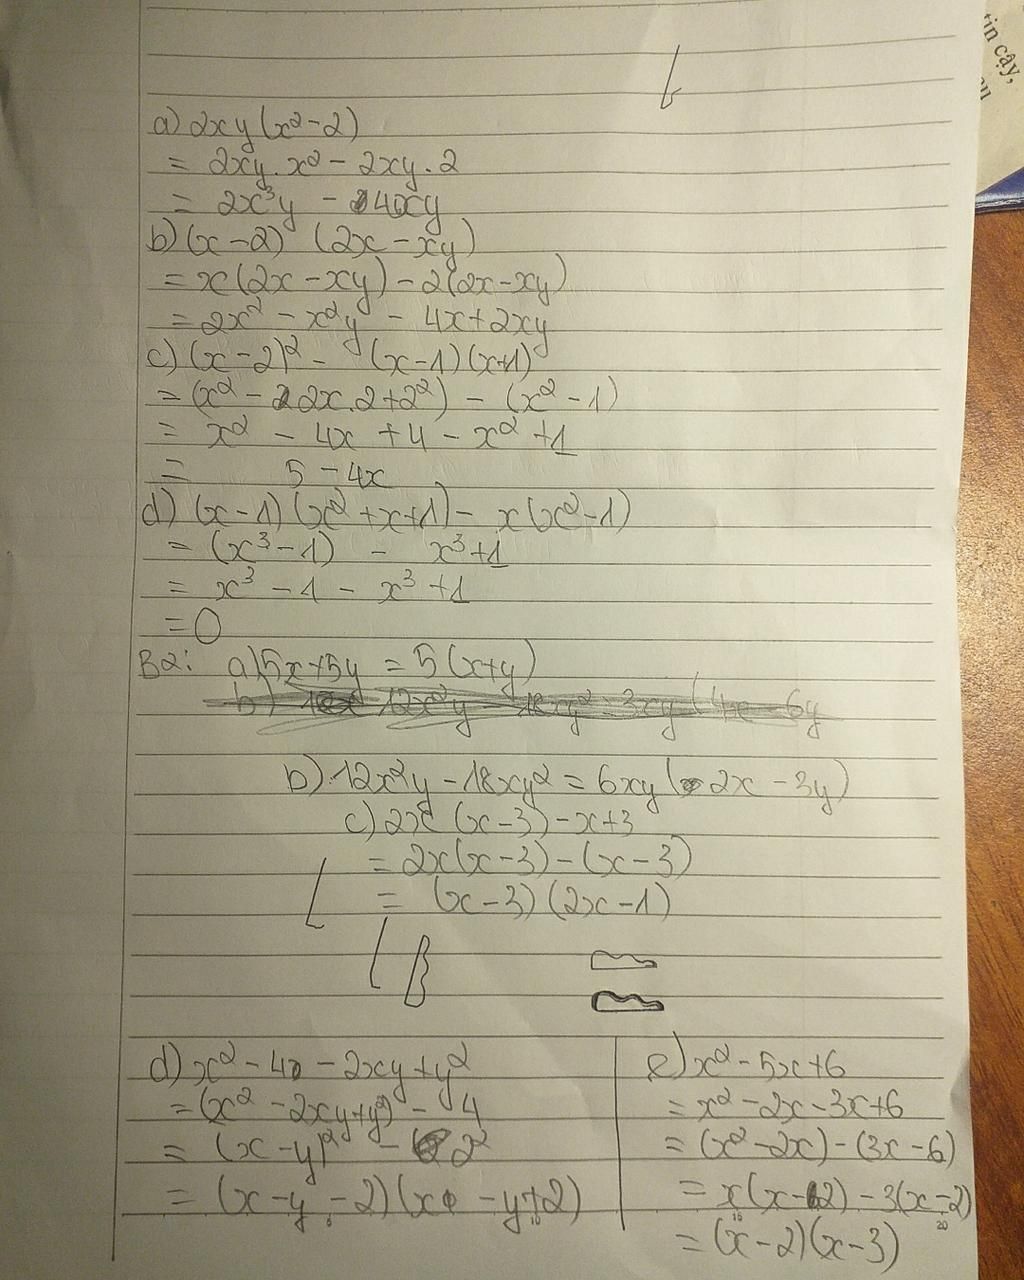 tin cậy,
a) 2xy(x²-2)
= 2xy.x² - 2xy.2
= 2x³y - 4xy
b) (x-2) (2x-xy)
= x(2x-xy)-2(2x-xy)
= 2x² - x²y - 4x+2xy
c) (x-2)² - (x-1)(x+1)
= (x² - 2x.2+2²) - (x²-1)
= x² - 4x + 4 - x² + 1
= 5 - 4x
d) (x-1)(x²+x+1) - x(x²-1)
= (x³-1) - x³+1
= x³ - 1 - x³ + 1
= 0
B2: a) 5x+5y = 5(x+y)
b) 12x²y - 18xy² = 3xy(4x - 6y
b) 12x²y - 18xy² = 6xy(2x - 3y)
c) 2x (x-3) - x+3
= 2x(x-3) - (x-3)
= (x-3)(2x-1)
d) x² - 4 - 2xy + y²
= (x² - 2xy+y²) - 4
= (x-y)² - 2²
= (x-y-2)(x-y+2)
e) x² - 5x+6
= x² - 2x - 3x+6
= (x² - 2x) - (3x-6)
= x(x-2) - 3(x-2)
= (x-2)(x-3)